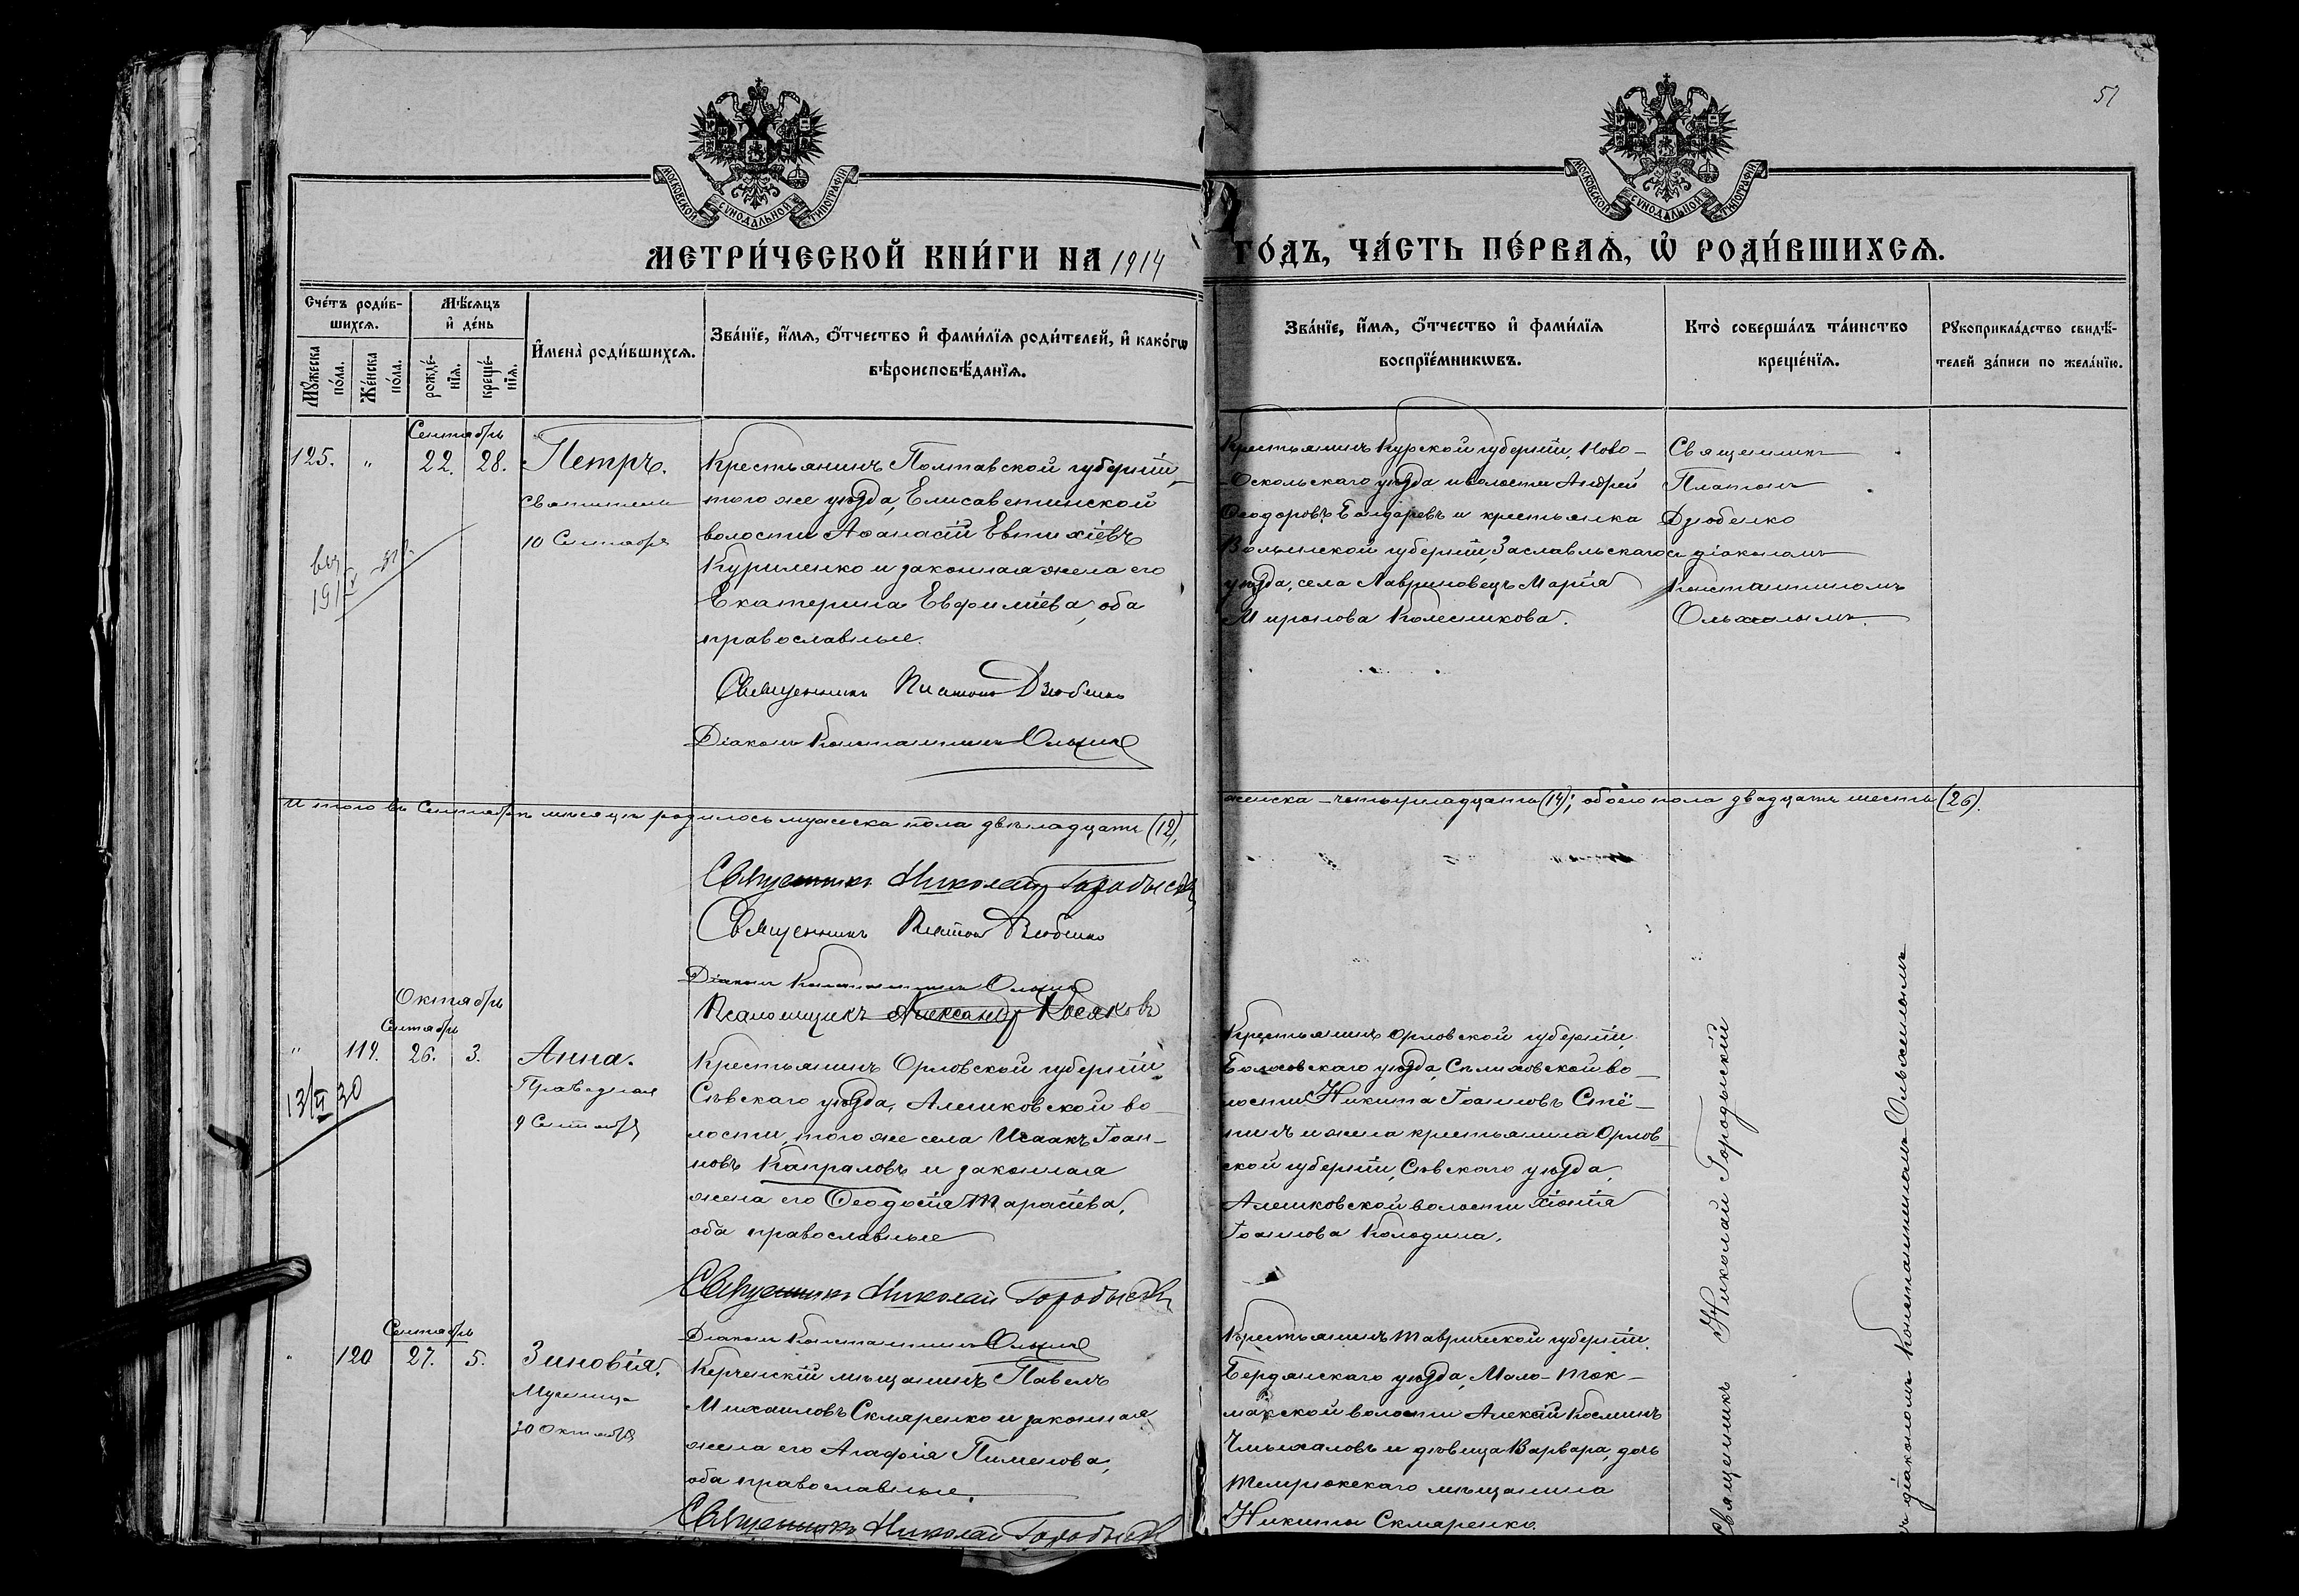 51
МОСКОВСКОЙ СУНОДАЛЬНОЙ ТИПОГРАФІИ
МОСКОВСКОЙ СУНОДАЛЬНОЙ ТИПОГРАФІИ
МЕТРИ́ЧЕСКОЙ КНИ́ГИ НА 1914
ГО́ДЪ, ЧА́СТЬ ПЕ́РВАѦ, Ѽ РОДИ́ВШИХСѦ.
Сче́тъ роди́в-
шихсѧ.
Мѣ́сѧцъ
и҆ де́нь
Мꙋ́жеска
по́ла.
Же́нска
по́ла.
рожде́-
нїѧ.
креще́-
нїѧ.
И҆мена̀ роди́вшихсѧ.
Зва́нїе, и҆́мѧ, ѻ҆́тчество и҆ фами́лїѧ роди́телей, и҆ како́гѡ
вѣроисповѣ́данїѧ.
Зва́нїе, и҆́мѧ, ѻ҆́тчество и҆ фами́лїѧ
воспрїе́мникѡвъ.
Кто̀ соверша́лъ та́инство
креще́нїѧ.
Рꙋкоприкла́дство свидѣ́-
телей за́писи по жела́нїю.
Сентябрь
125. " 22. 28. Петръ.
святителя
10 Сентября
Крестьянинъ Полтавской губерніи,
того же уѣзда, Елисаветинской
волости Аѳанасій Евтихіевъ
Куриленко и законная жена его
Екатерина Евфиміева, оба
православные.
Священникъ Платонъ Дзюбенко
Діаконъ Константинъ
Крестьянинъ Курской губерніи, Ново-
-Оскольскаго уѣзда и волости Андрей
Ѳеодоровъ Болдаревъ и крестьянка
Волынской губерніи, Заславльскаго
уѣзда, села Лавриновецъ Марія
Миронова Колесникова.
Священникъ
Платонъ
Дзюбенко
съ діакономъ
Константиномъ
Итого въ Сентябрѣ мѣсяцѣ родилось мужеска пола двѣнадцать (12),
женска – четырнадцать (14); обоего пола двадцать шесть (26).
Священникъ Николай Городыскій
Священникъ Платонъ Дзюбенко
Діаконъ Константинъ
Псаломщикъ Александр Косяковъ
Октябрь
Сентябрь
" 119. 26. 3. Анна.
Праведная
9 Сентября
13/II 30
Крестьянинъ Орловской губерніи,
Сѣвскаго уѣзда, Алешковской во-
лости, того же села Исаакъ Іоан-
новъ Капраловъ и законная
жена его Ѳеодосія Тарасіева,
оба православные
Священникъ Николай Городыскій
Діаконъ Константинъ
Крестьянинъ Орловской губерніи,
Болховскаго уѣзда, Сѣлиховской во-
лости Никита Іоанновъ Стё-
пинъ и жена крестьянина Орлов
ской губерніи, Сѣвскаго уѣзда,
Алешковской волости Хіонія
Іоаннова Колодина.
Сентябрь
" 120 27. 5. Зиновія.
Мученица
30 Октября
Керченскій мѣщанинъ Павелъ
Михаиловъ Скляренко и законная
жена его Агафія Пименова,
оба православные.
Священникъ Николай Городыскій
Крестьянинъ Таврической губерніи,
Бердянскаго уѣзда, Мало-Ток-
макской волости Алексій Косминъ
Чмыхаловъ и дѣвица Варвара, дочь
Темрюкскаго мѣщанина
Никиты Скляренко.
Священникъ Николай Городыскій
съ діакономъ Константиномъ